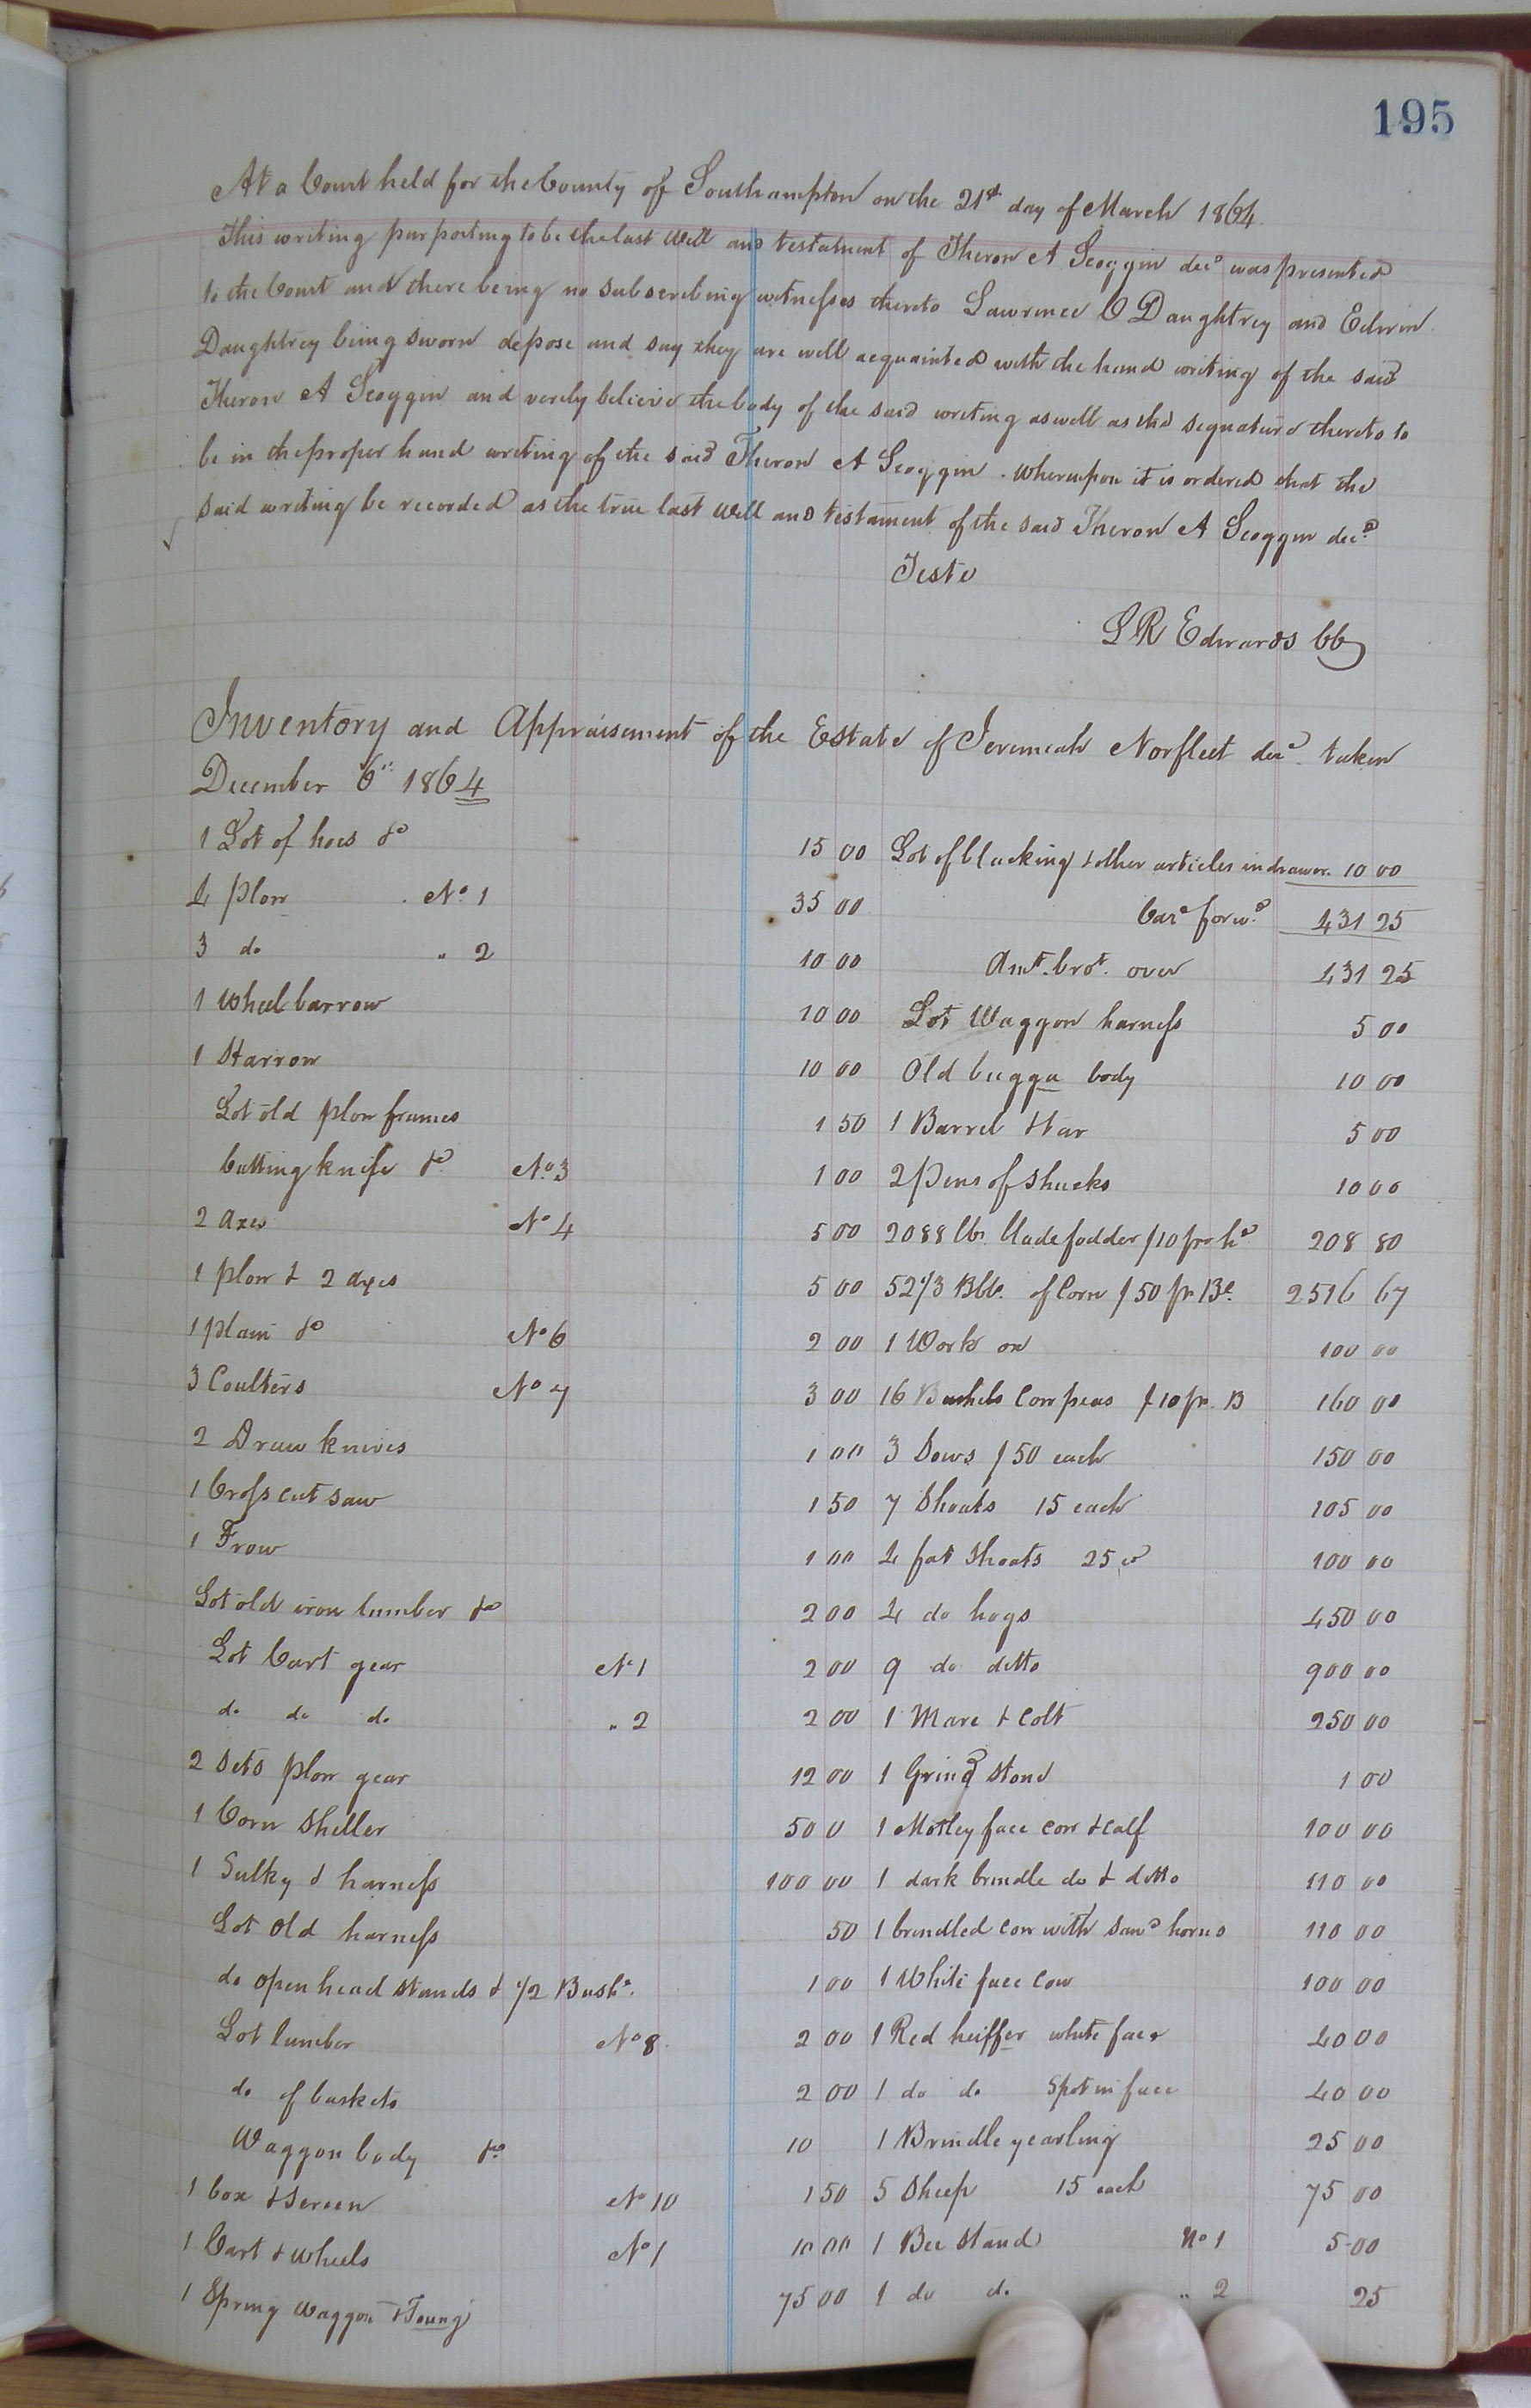 195
At a Court held for the County of Southampton on the 21st day of March 1864.
This writing purporting to be the last Will and testament of Theron A Scoggin decd was presented
to the Court and there being no subscribing witnesses thereto Lawrence O Daughtrey and Edwin
Daughtrey being sworn depose and say they are well acquainted with the hand writing of the said
Theron A Scoggin and verely believe the body of the said writing as well as the signature thereto to
be in the proper hand writing of the said Theron A Scoggin. Whereupon it is ordered that the
said writing be recorded as the true last Will and testament of the said Theron A Scoggin decd
Teste
L R Edwards CC
Inventory and Appraisement of the Estate of Jeremiah Norfleet decd taken
December 6th 1864
1 Lot of hoes &c 15 00
4 plow No. 1 35 00
3 do " 2 10 00
1 Wheel barrow 10 00
1 Harrow 10 00
Lot old plow frames 1 50
Cutting knife &c No. 3 1 00
2 axes No 4 5 00
1 plow & 2 axes 5 00
1 plain &c No 6 2 00
3 Coulters No 7 3 00
2 Draw knives 1 00
1 Cross cut saw 1 50
1 Frow 1 00
Lot old iron lumber &c 2 00
Lot Cart gear No 1 2 00
do do do " 2 2 00
2 sets plow gear 12 00
1 Corn Sheller 50 0
1 Sulky & harness 100 00
Lot old harness 50
do open head stands & 1/2 Bushl. 1 00
Lot lumber No 8 2 00
do of baskets 2 00
Waggon body &c 10
1 box & Screen No 10 1 50
1 Cart & wheels No 1 10 00
1 Spring Waggon & 75 00
Lot of blacking & other articles in drawer. 10 00
Card forwd 431 25
Amt. brot. over 431 25
Lot Waggon harness 5 00
Old buggu body 10 00
1 Barrel & tar 5 00
2 pens of shucks 10 00
2088 lbs blade fodder $10 pr hd 208 80
52 1/3 Bbls. of Corn $50 pr Bl. 2516 67
1 Work ox 100 00
16 Bushels Cow peas $10 pr. B 160 00
3 Sows $50 each 150 00
7 Shoats 15 each 105 00
4 fat Shoats 25 " 100 00
4 do hogs 450 00
9 do ditto 900 00
1 Mare & Colt 250 00
1 Grind stone 1 00
1 Motley face cow & calf 100 00
1 dark brindle do & ditto 110 00
1 brindled cow with sawd horns 110 00
1 White face Cow 100 00
1 Red heiffer white face 40 00
1 do do Spot in face 40 00
1 Brindle yearling 25 00
5 Sheep 15 each 75 00
1 Bee Stand No 1 5 00
1 do do " 2 25